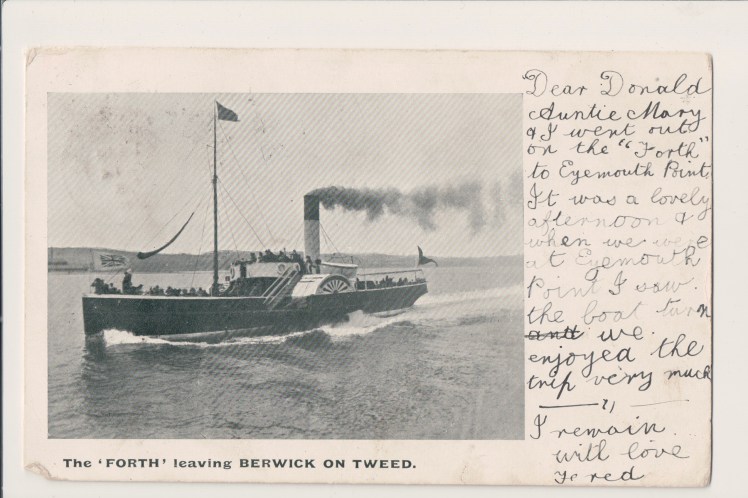 Dear Donald
Auntie Mary
& I went out
on the "Forth"
to Eyemouth Point
It was a lovely
afternoon &
when we were
at Eyemouth
Point I saw
the boat turn
we
enjoyed the
trip very much
I remain
with love
Fred
The 'FORTH' leaving BERWICK ON TWEED.